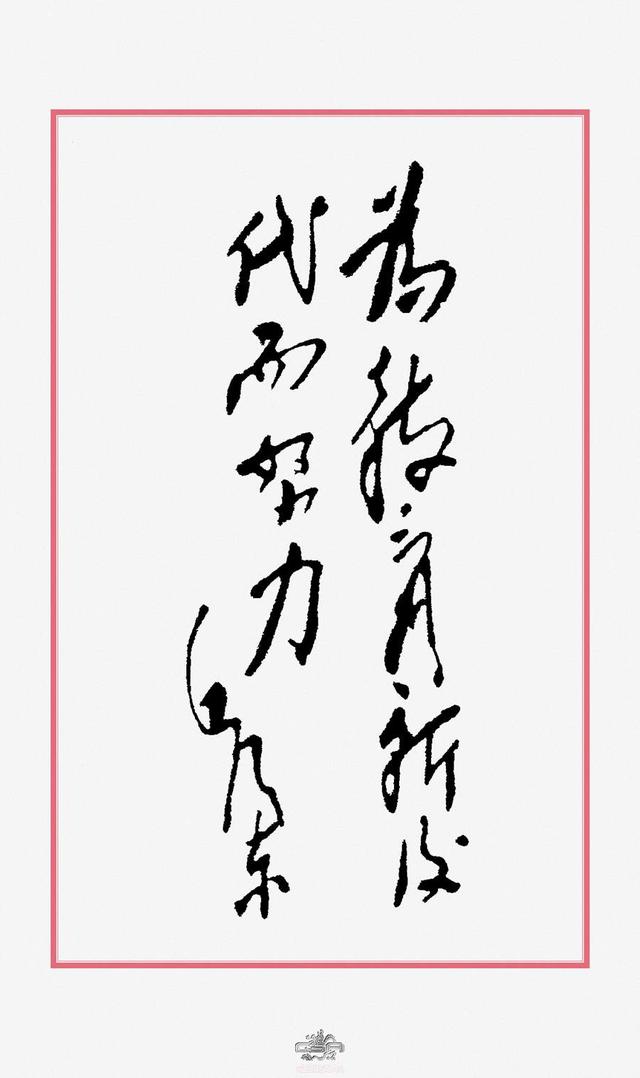 为教育新後
代而努力
毛泽东